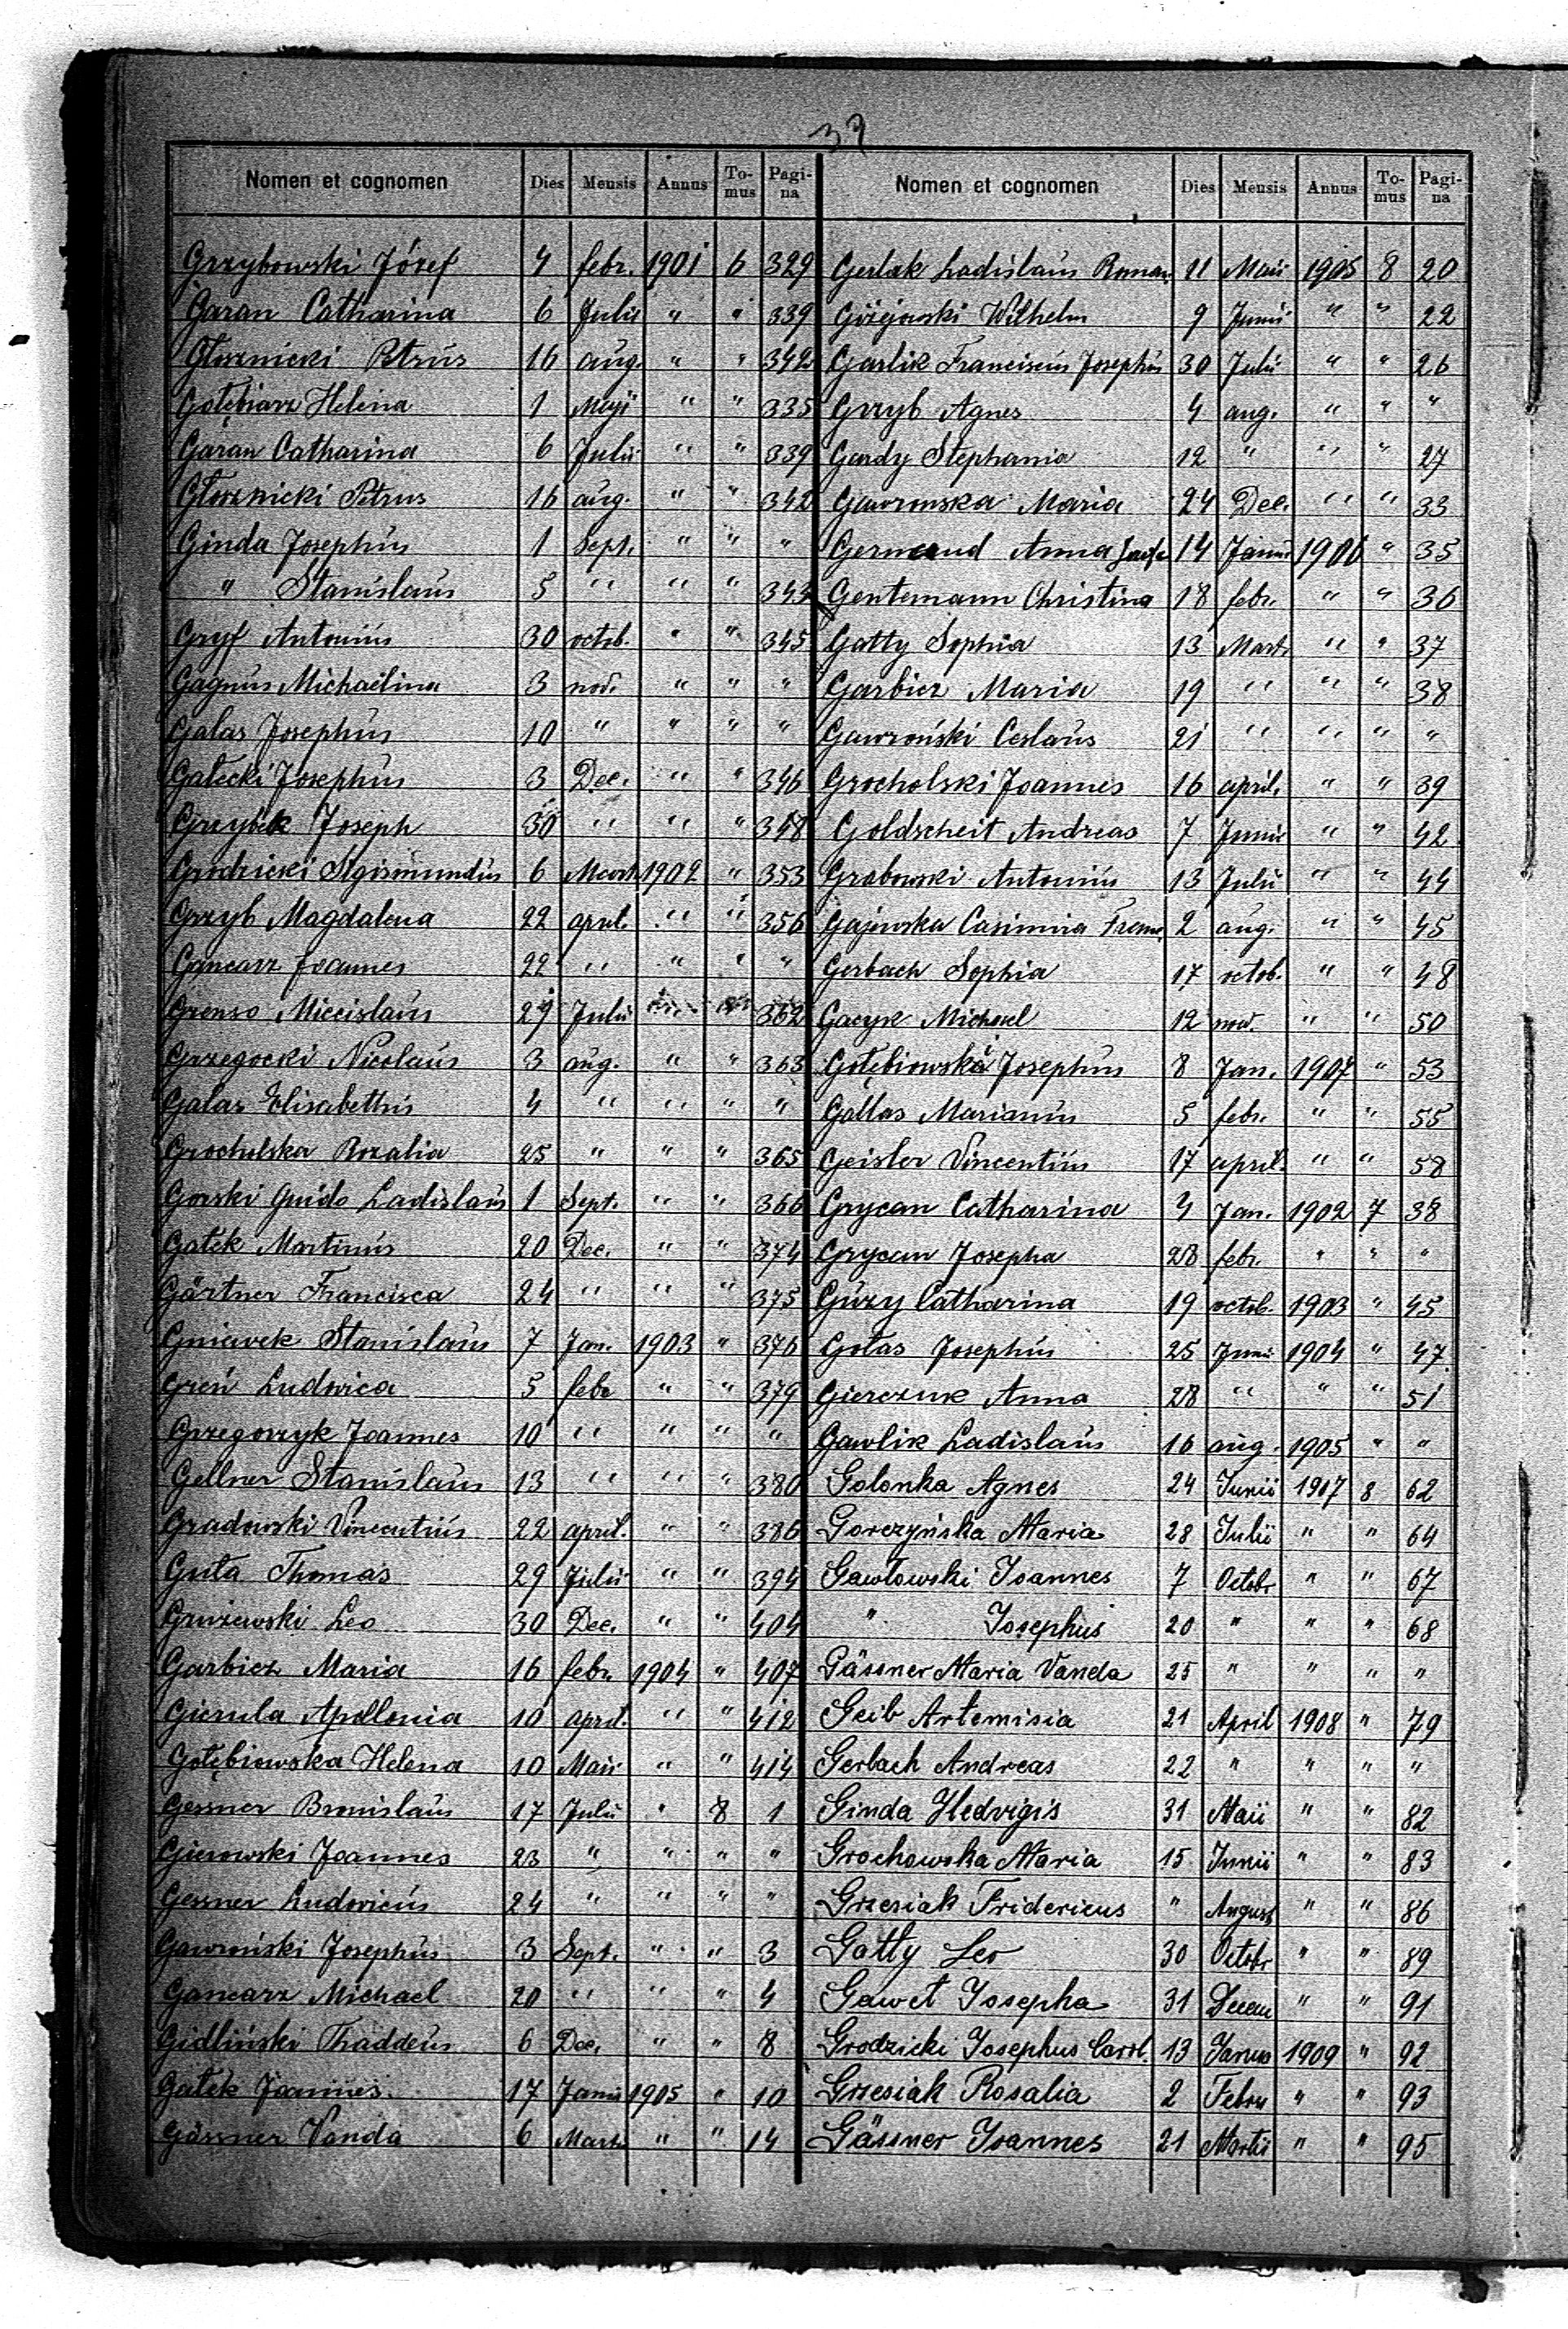 37
Nomen et cognomen Dies Mensis Annus To-mus Pagi-na
Grzybowski Józef 4 febr. 1901 6 329
Garan Catharina 6 Julii " " 339
Głoznicki Petrus 16 aug. " " 342
Gołębiarz Helena 1 Maji " " 335
Garan Catharina 6 Julii " " 339
Głoznicki Petrus 16 aug. " " 342
Ginda Josephus 1 Sept. " " "
" Stanislaus 5 " " " 343
Gryf Antonius 30 octob. " " 345
Gagnus Michaelina 3 nov. " " "
Galas Josephus 10 " " " "
Gałecki Josephus 3 Dec. " " 346
Grzybek Joseph 30 " " " 348
Grodzicki Sigismundus 6 Mart. 1902 " 353
Grzyb Magdalena 22 april. " " 356
Gancarz Joannes 22 " " " "
Grenso Miecislaus 29 Julii " " 362
Grzegocki Nicolaus 3 aug. " " 363
Galas Elisabetths 4 " " " "
Grocholska Rozalia 25 " " " 365
Gorski Guido Ladislaus 1 Sept. " " 366
Gałek Martinus 20 Dec. " " 374
Gärtner Francisca 24 " " " 375
Gniewek Stanislaus 7 Jan. 1903 " 376
Greń Ludovica 5 febr " " 379
Grzegorzyk Joannes 10 " " " "
Gellner Stanislaus 13 " " " 380
Gradowski Vincentius 22 april. " " 386
Guta Thomas 29 Julii " " 394
Grużewski Leo 30 Dec. " " 404
Garbicz Maria 16 febr. 1904 " 407
Gierula Apollonia 10 april. " " 412
Gołębiowska Helena 10 Maii " " 414
Gessner Bronislaus 17 Julii " 8 1
Gierowski Joannes 23 " " " "
Gessner Ludovicus 24 " " " "
Gawroński Josephus 3 Sept. " " 3
Gancarz Michael 20 " " " 4
Gidliński Thaddeus 6 Dec. " " 8
Gałek Joannes 17 Janu 1905 " 10
Gässner Vanda 6 Mart. " " 14
Nomen et cognomen Dies Mensis Annus To-mus Pagi-na
Gerlak Ladislaus Roman. 11 Maii 1905 8 20
Wilhelm 9 Junii " " 22
Garlik Franciscus Josephus 30 Julii " " 26
Grzyb Agnes 4 aug. " " "
Gardy Stephania 12 " " " 27
Gawronska Maria 24 Dec. " " 33
Anna 14 Janu 1906 " 35
Gentemann Christina 18 febr. " " 36
Gatty Sophia 13 Mart. " " 37
Garbicz Maria 19 " " " 38
Gawroński Ceslaus 21 " " " "
Grocholski Joannes 16 april. " " 39
Goldscheit Andreas 7 Junii " " 42
Grabowski Antonius 13 Julii " " 44
Gajewska Casimira Franc. 2 aug. " " 45
Gerbach Sophia 17 octob. " " 48
Gacyk Michael 12 nov. " " 50
Gołębiowski Josephus 8 Jan. 1907 " 53
Gallas Marianus 5 febr. " " 55
Geisler Vincentius 17 april. " " 58
Grycan Catharina 4 Jan. 1902 7 38
Grycan Josepha 28 febr. " " "
Guzy Catharina 19 octob. 1903 " 45
Gołas Josephus 25 Junii 1904 " 47
Gierczuk Anna 28 " " " 51
Gawlik Ladislaus 16 aug. 1905 " "
Golonka Agnes 24 Junii 1907 8 62
Gorczyńska Maria 28 Julii " " 64
Gawłowski Joannes 7 Octobr " " 67
" Josephus 20 " " " 68
Gässner Maria Vanda 25 " " " "
Geib Artemisia 21 April 1908 " 79
Gerbach Andreas 22 " " " "
Ginda Hedvigis 31 Maii " " 82
Grochowska Maria 15 Junii " " 83
Grzesiak Fridericus " August " " 86
Gatty Leo 30 Octobr " " 89
Gaweł Josepha 31 Decem " " 91
Grodzicki Josephus Carol. 13 Janua 1909 " 92
Grzesiak Rosalia 2 Febru " " 93
Gässner Joannes 21 Martii " " 95